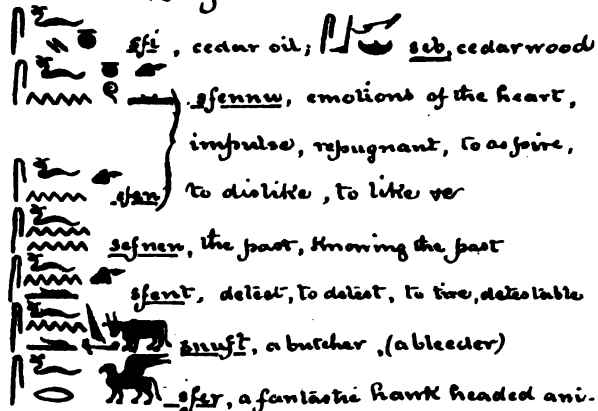 sfi, cedar oil; seb, cedarwood
sfennw, emotions of the heart,
impulse, repugnant, to aspire,
sfen to dislike, to like ve
sefnen, the past, Knowing the past
sfent, detest, to detest, to tire, detestable
snuft, a butcher, (a bleeder)
sfer, a fantastic hawk headed ani-